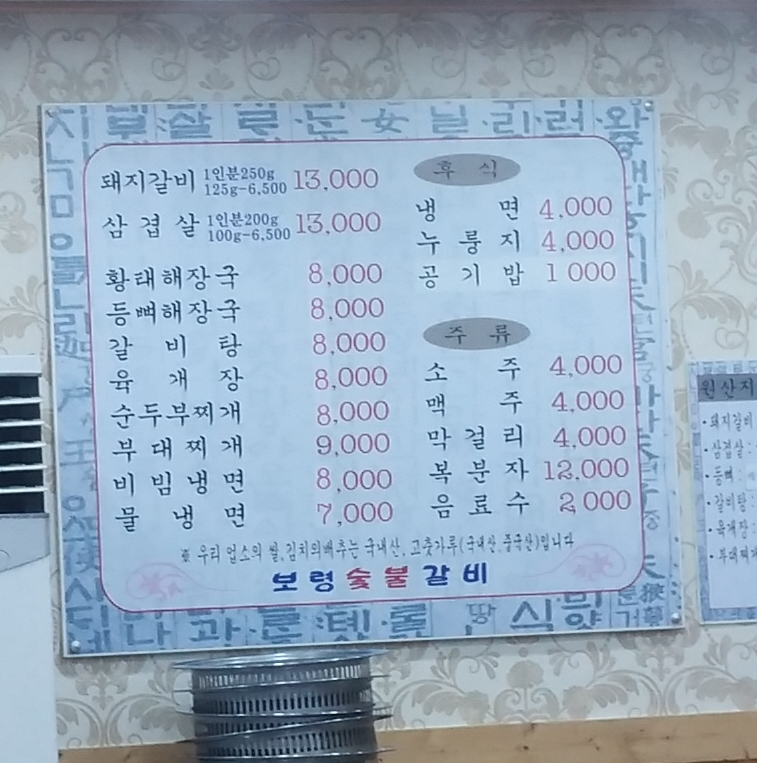 돼지갈비 1인분250g 125g-6,500 13,000
삼겹살 1인분200g 100g-6,500 13,000
황태해장국 8,000
등뼈해장국 8,000
갈비탕 8,000
육개장 8,000
순두부찌개 8,000
부대찌개 9,000
비빔냉면 8,000
물냉면 7,000
후식
냉면 4,000
누룽지 4,000
공기밥 1000
주류
소주 4,000
맥주 4,000
막걸리 4,000
복분자 12,000
음료수 2,000
※ 우리 업소의 쌀,김치의배추는 국내산, 고춧가루(국내산,중국산)입니다
보령숯불갈비
원산지
·돼지갈비
·삼겹살:
·등뼈:
·갈비탕:
·육개장:
·부대찌개